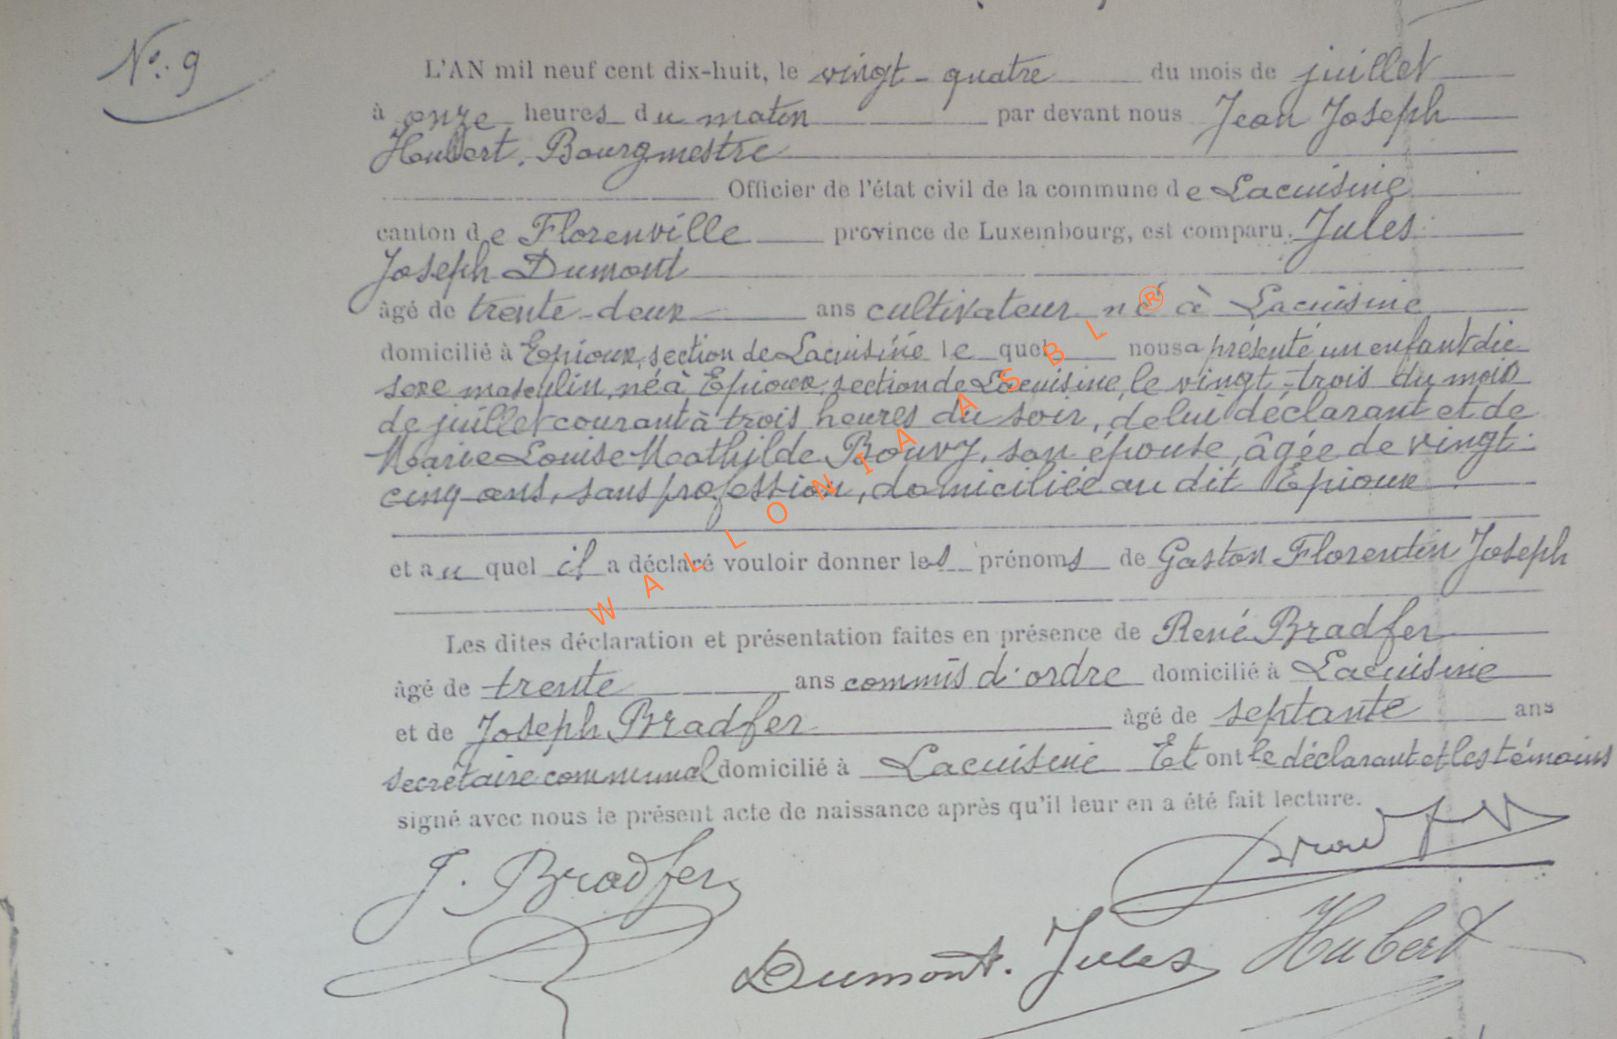 N° 9
L'AN mil neuf cent dix-huit, le vingt-quatre du mois de juillet
à onze heures du matin par devant nous Jean Joseph
Hubert, Bourgmestre
Officier de l'état civil de la commune de Lacuisine
canton de Florenville province de Luxembourg, est comparu Jules
Joseph Dumont
âgé de trente-deux ans cultivateur né à Lacuisine
domicilié à Epioux, section de Lacuisine lequel nous a présenté un enfant du
sexe masculin, né à Epioux, section de Lacuisine, le vingt-trois du mois
de juillet courant à trois heures du soir, de lui déclarant et de
Marie Louise Mathilde Bouvy, son épouse, âgée de vingt-
cinq ans, sans profession, domiciliée au dit Epioux
et auquel il a déclaré vouloir donner les prénoms de Gaston Florentin Joseph
Les dites déclaration et présentation faites en présence de René Bradfer
âgé de trente ans commis d'ordre domicilié à Lacuisine
et de Joseph Bradfer âgé de septante ans
secrétaire communal domicilié à Lacuisine Et ont le déclarant et les témoins
signé avec nous le présent acte de naissance après qu'il leur en a été fait lecture.
J. Bradfer
Bradfer
Dumont. Jules Hubert
WALLONIA ASBL®